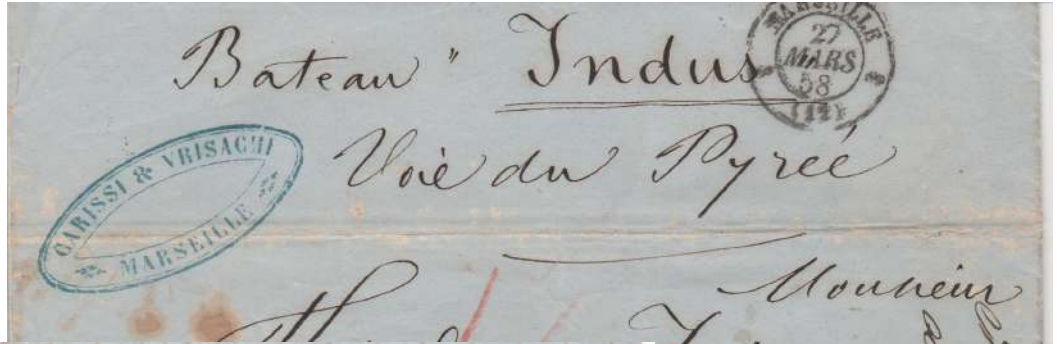 Bateau " Indus
MARSEILLE
27
MARS
58
(12)
Voie du Pyreé
CARISSI & VRISACHI
MARSEILLE
Monsieur